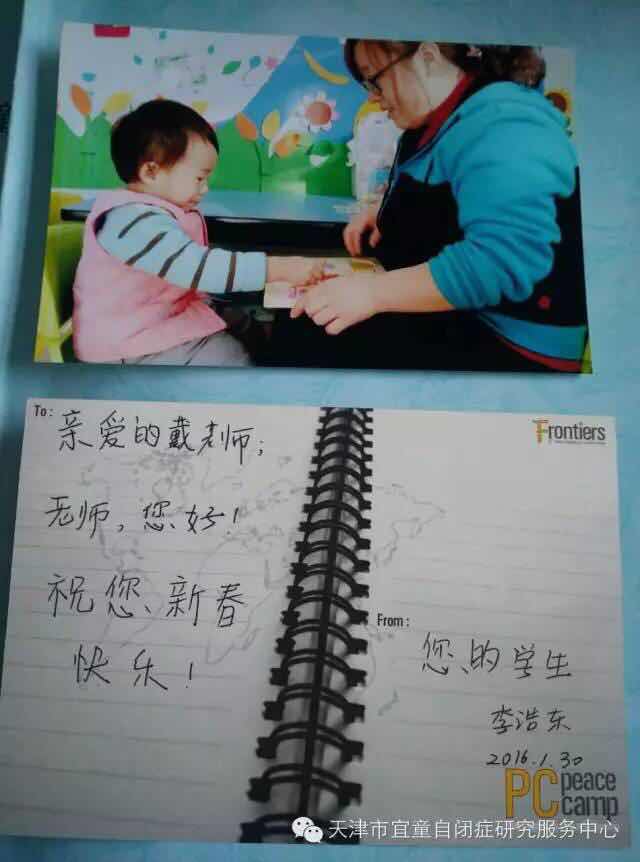 To:
亲爱的戴老师;
老师,您好!
祝您、新春
快乐!
Frontiers
From:
您、的学生
李浩东
2016.1.30
PC peace camp
天津市宜童自闭症研究服务中心